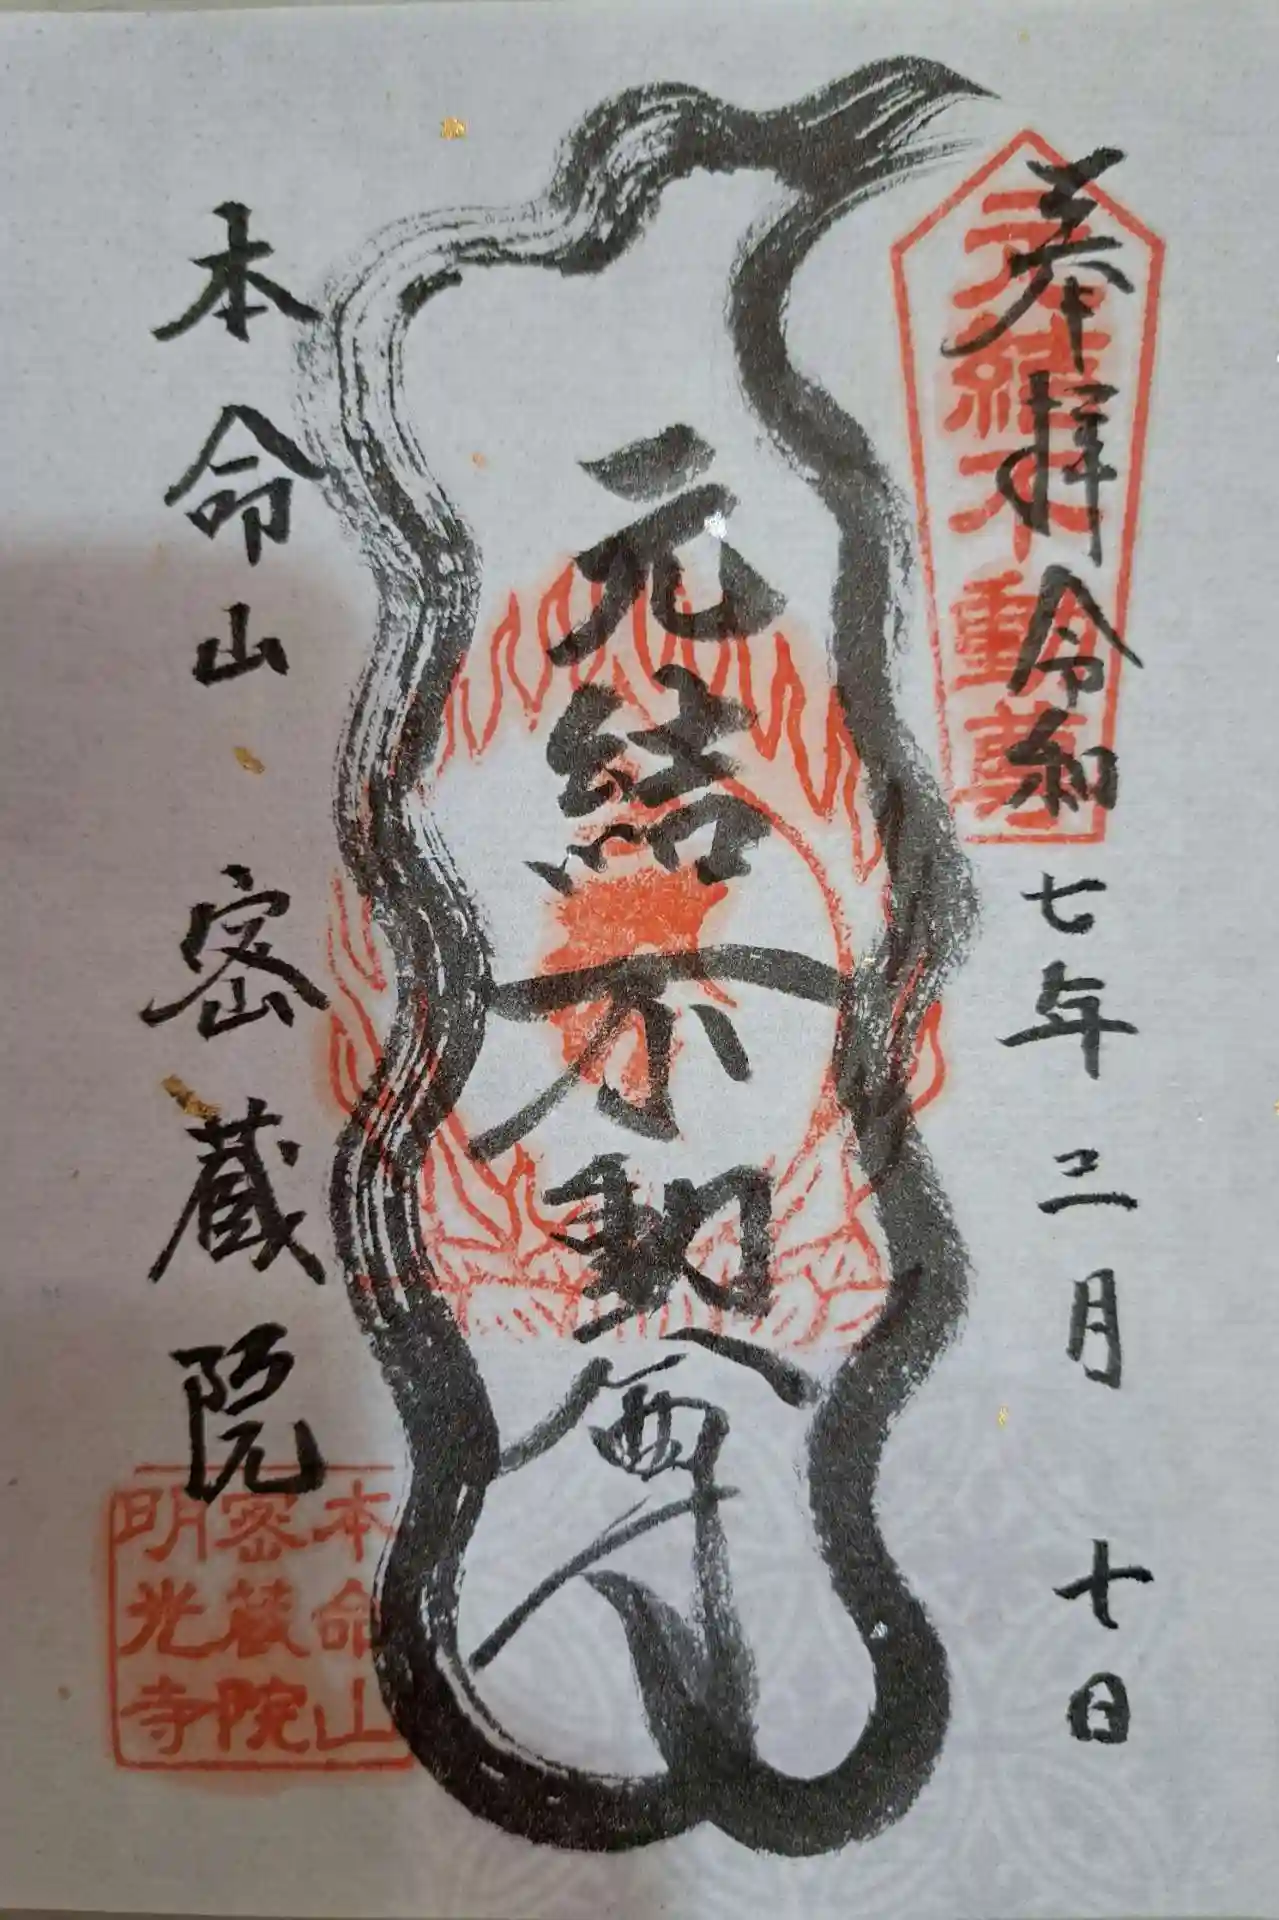 奉拝 令和七年二月十日
元結不動尊
元結不動尊
本命山 密蔵院
本命山
密蔵院
明光寺